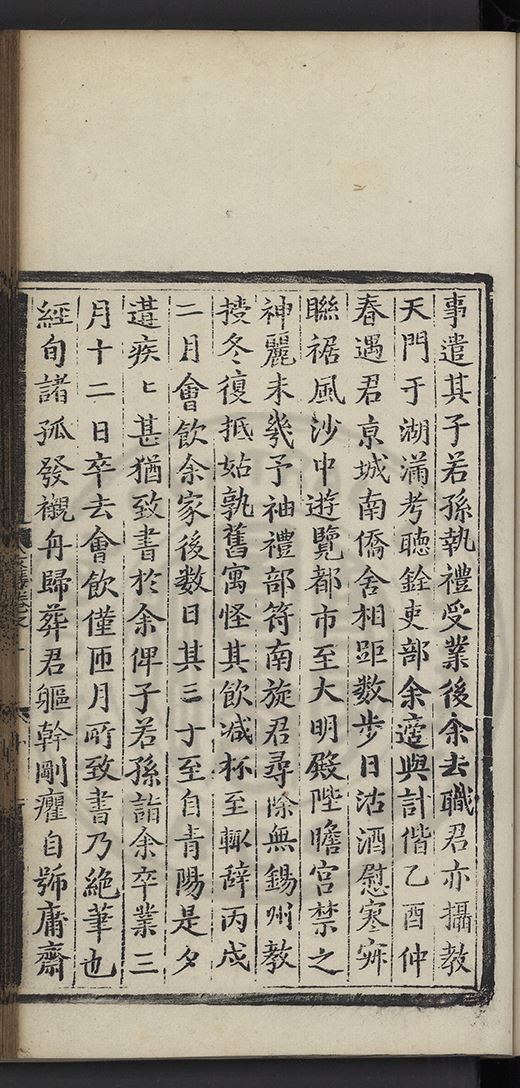 事遣其子若孫執禮受業後余去職君亦攝教
天門于湖滿考聽銓吏部余適與計偕乙酉仲
春遇君京城南僑舍相距數步日沽酒慰寥寂
聯裾風沙中遊覽都市至大明殿陛瞻宮禁之
神麗未幾予袖禮部符南旋君尋除無錫州教
授冬復抵姑孰舊寓怪其飲减杯至輙辞丙戍
二月會飲余家後数日其三寸至自青陽是夕
遘疾匕甚猶致書於余俾子若孫詣余卒業三
月十二日卒去會飲僅匝月所致書乃絶筆也
經旬諸孤發櫬舟歸葬君軀幹剛癯自號庸齋